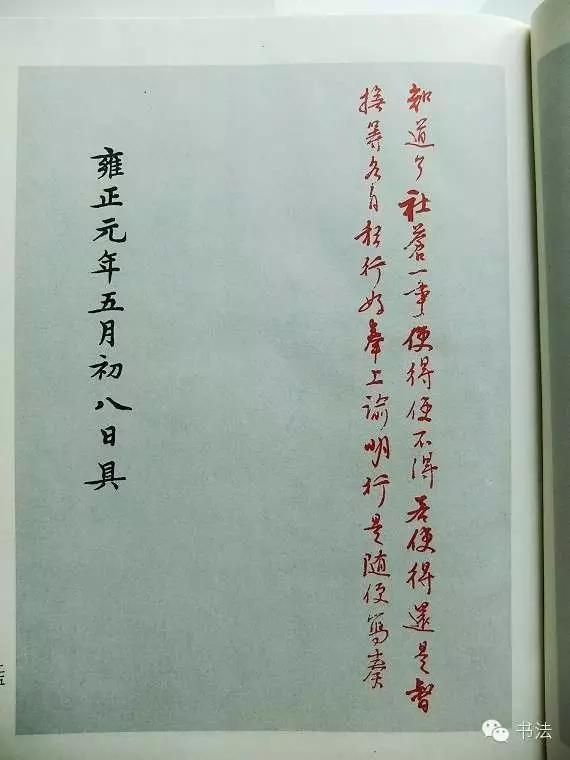 知道了社蒼一事使得使不得若使得還是督
撫等各自私行好奉上諭明行是随便寫奏
雍正元年五月初八日具
书法